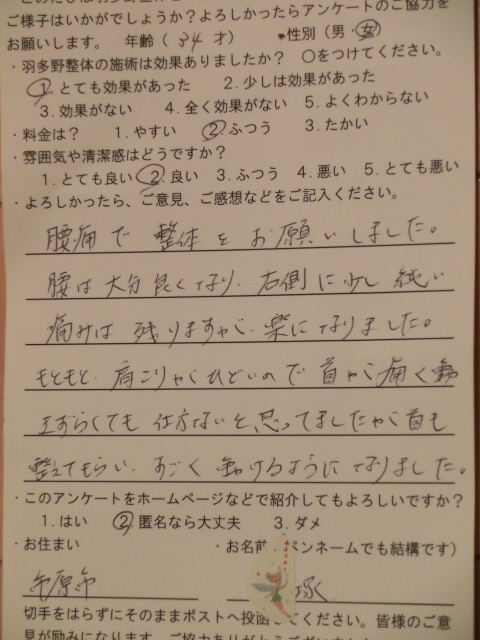 ご様子はいかがでしょうか？よろしかったらアンケートのご協力を
お願いします。 年齢（34才） ・性別（男・女）
・羽多野整体の施術は効果ありましたか？ ○をつけてください。
1. とても効果があった 2. 少しは効果があった
3. 効果がない 4. 全く効果がない 5. よくわからない
・料金は？ 1. やすい 2. ふつう 3. たかい
・雰囲気や清潔感はどうですか？
1. とても良い 2. 良い 3. ふつう 4. 悪い 5. とても悪い
・よろしかったら、ご意見、ご感想などをご記入ください。
腰痛で整体をお願いしました。
腰は大分良くなり、右側に少し鈍い
痛みは残りますが、楽になりました。
もともと、肩こりがひどいので首が痛く動
きずらくても仕方ないと、思ってましたが首も
整えてもらい、すごく動けるようになりました。
・このアンケートをホームページなどで紹介してもよろしいですか？
1. はい 2. 匿名なら大丈夫 3. ダメ
・お住まい ・お名前 ペンネームでも結構です）
市原市 塚
切手をはらずにそのままポストへ投函 ください。皆様のご意
見が励みになります。